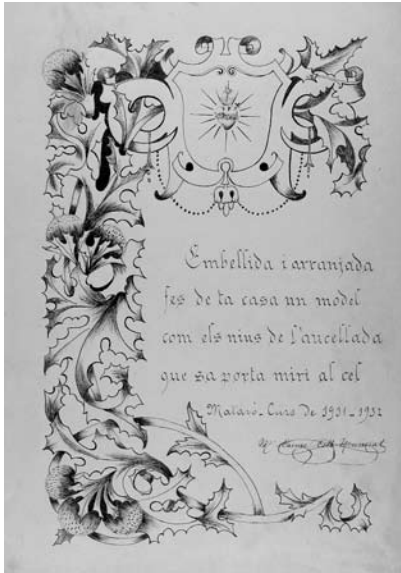 Embellida i arranjada
fes de ta casa un model
com els nius de l'aucellada
que sa porta miri al cel
Mataró - Curs de 1931-1932
Mª Carme Coll